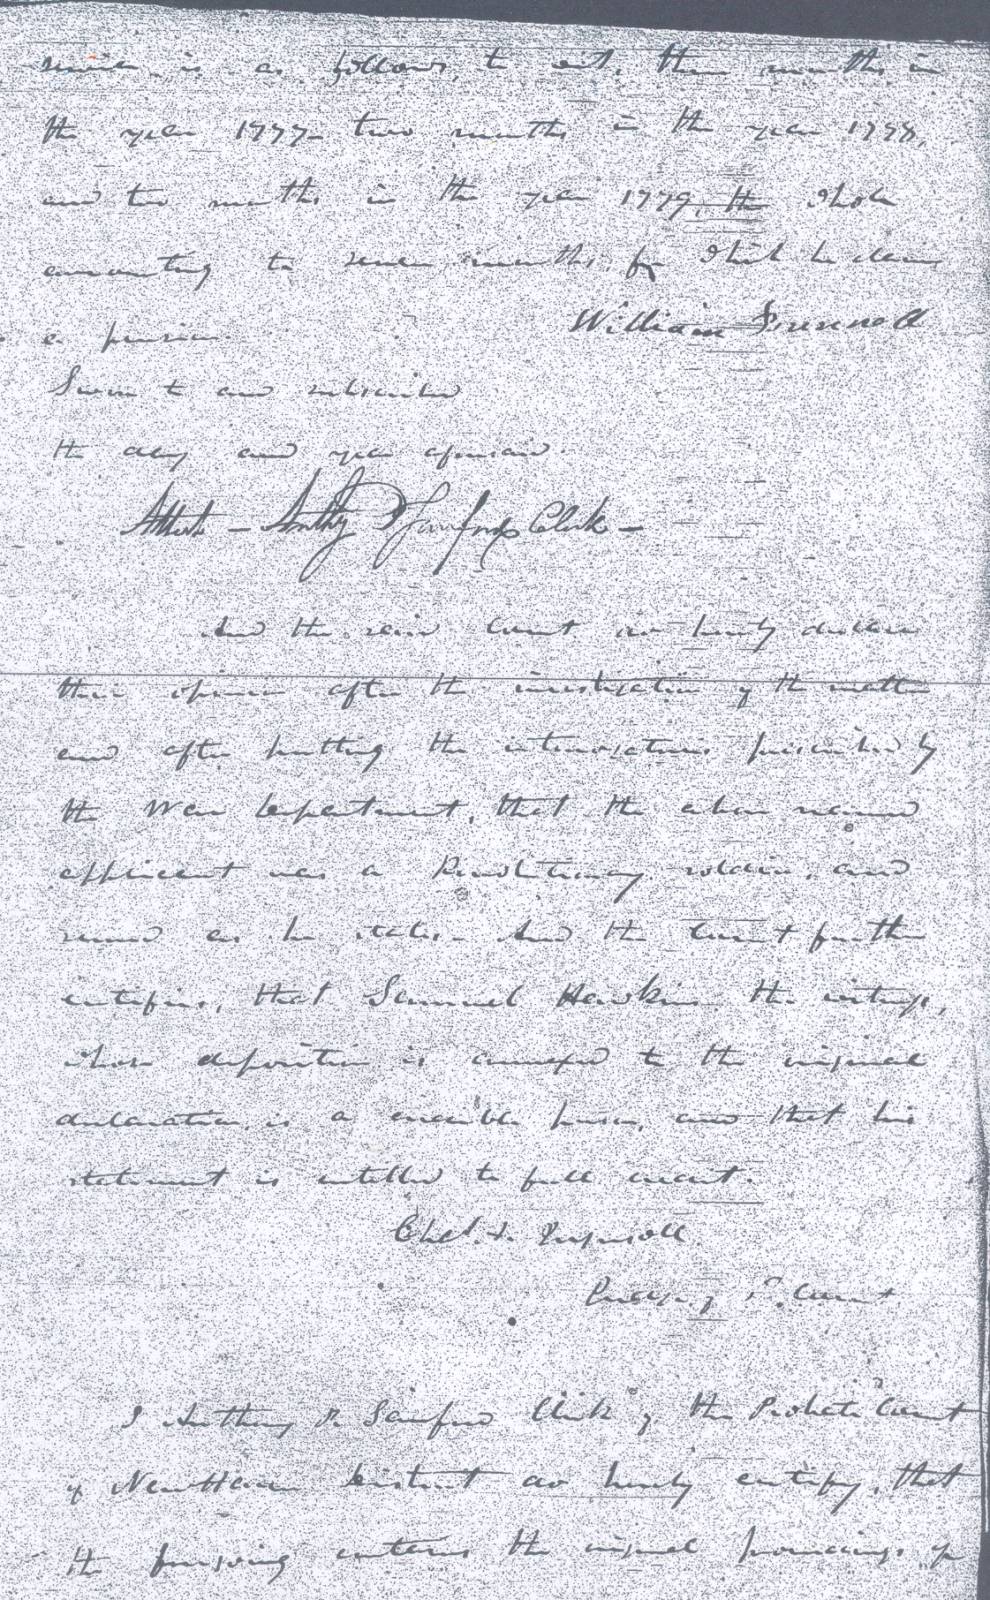 service is as follows, to wit, three months in
the year 1777– two months in the year 1778,
and two months in the year 1779, the whole
amounting to seven months, for which he claims
a pension.
William
Sworn to and subscribed
the day and year aforesaid.
Attest – Anthy P Sanford Clerk –
And the said Court do hereby declare
their opinion after the investigation of the matter
and after putting the interrogatories prescribed by
the War Department, that the above named
applicant was a Revolutionary soldier, and
served as he states – And the Court further
certifies, that Samuel Hawkins the witness,
whose deposition is annexed to the original
declaration, is a credible person, and that his
statement is entitled to full credit.
Chs. A. Ingersoll
Judge of P. Court
I Anthony P. Sanford Clerk of the Probate Court
of New Haven District do hereby certify, that
the foregoing contains the original proceedings of